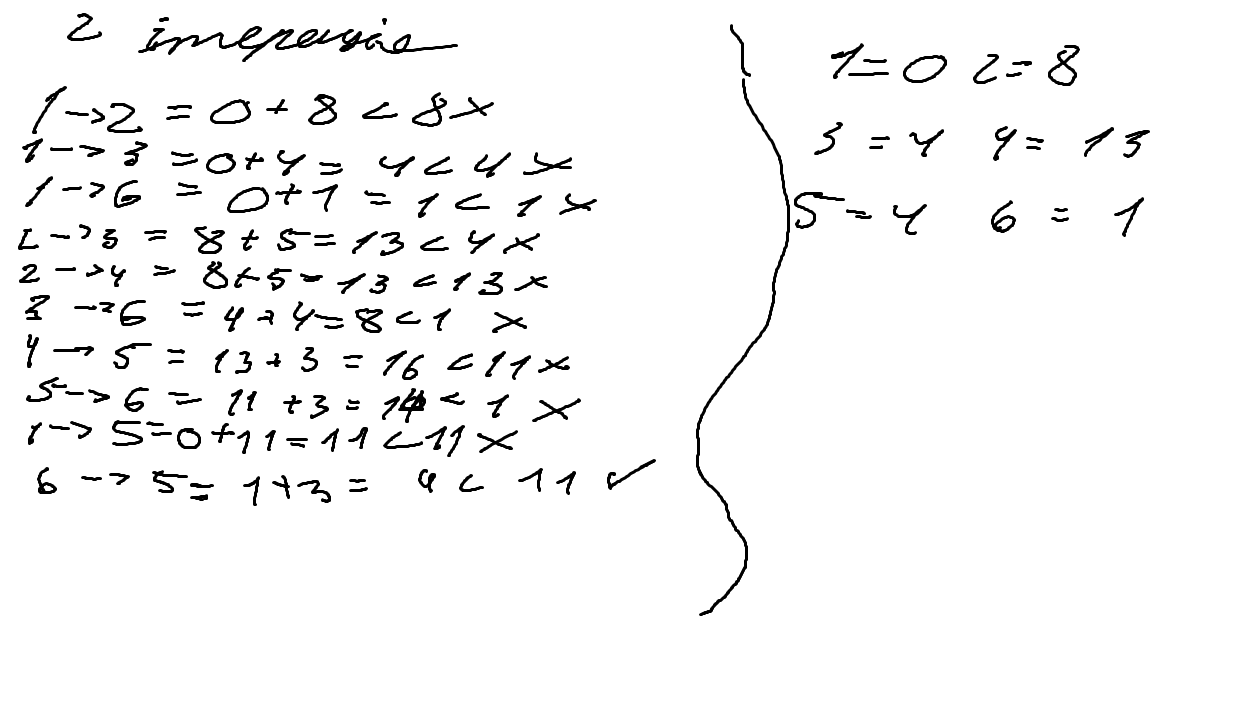 2 ітерація
1 -> 2 = 0 + 8 < 8 x
1 -> 3 = 0 + 4 = 4 < 4 x
1 -> 6 = 0 + 1 = 1 < 1 x
2 -> 3 = 8 + 5 = 13 < 4 x
2 -> 4 = 8 + 5 = 13 < 13 x
3 -> 6 = 4 + 4 = 8 < 1 x
4 -> 5 = 13 + 3 = 16 < 11 x
5 -> 6 = 11 + 3 = 14 < 1 x
1 -> 5 = 0 + 11 = 11 < 11 x
6 -> 5 = 1 + 3 = 4 < 11 ✓
1 = 0 2 = 8
3 = 4 4 = 13
5 = 4 6 = 1